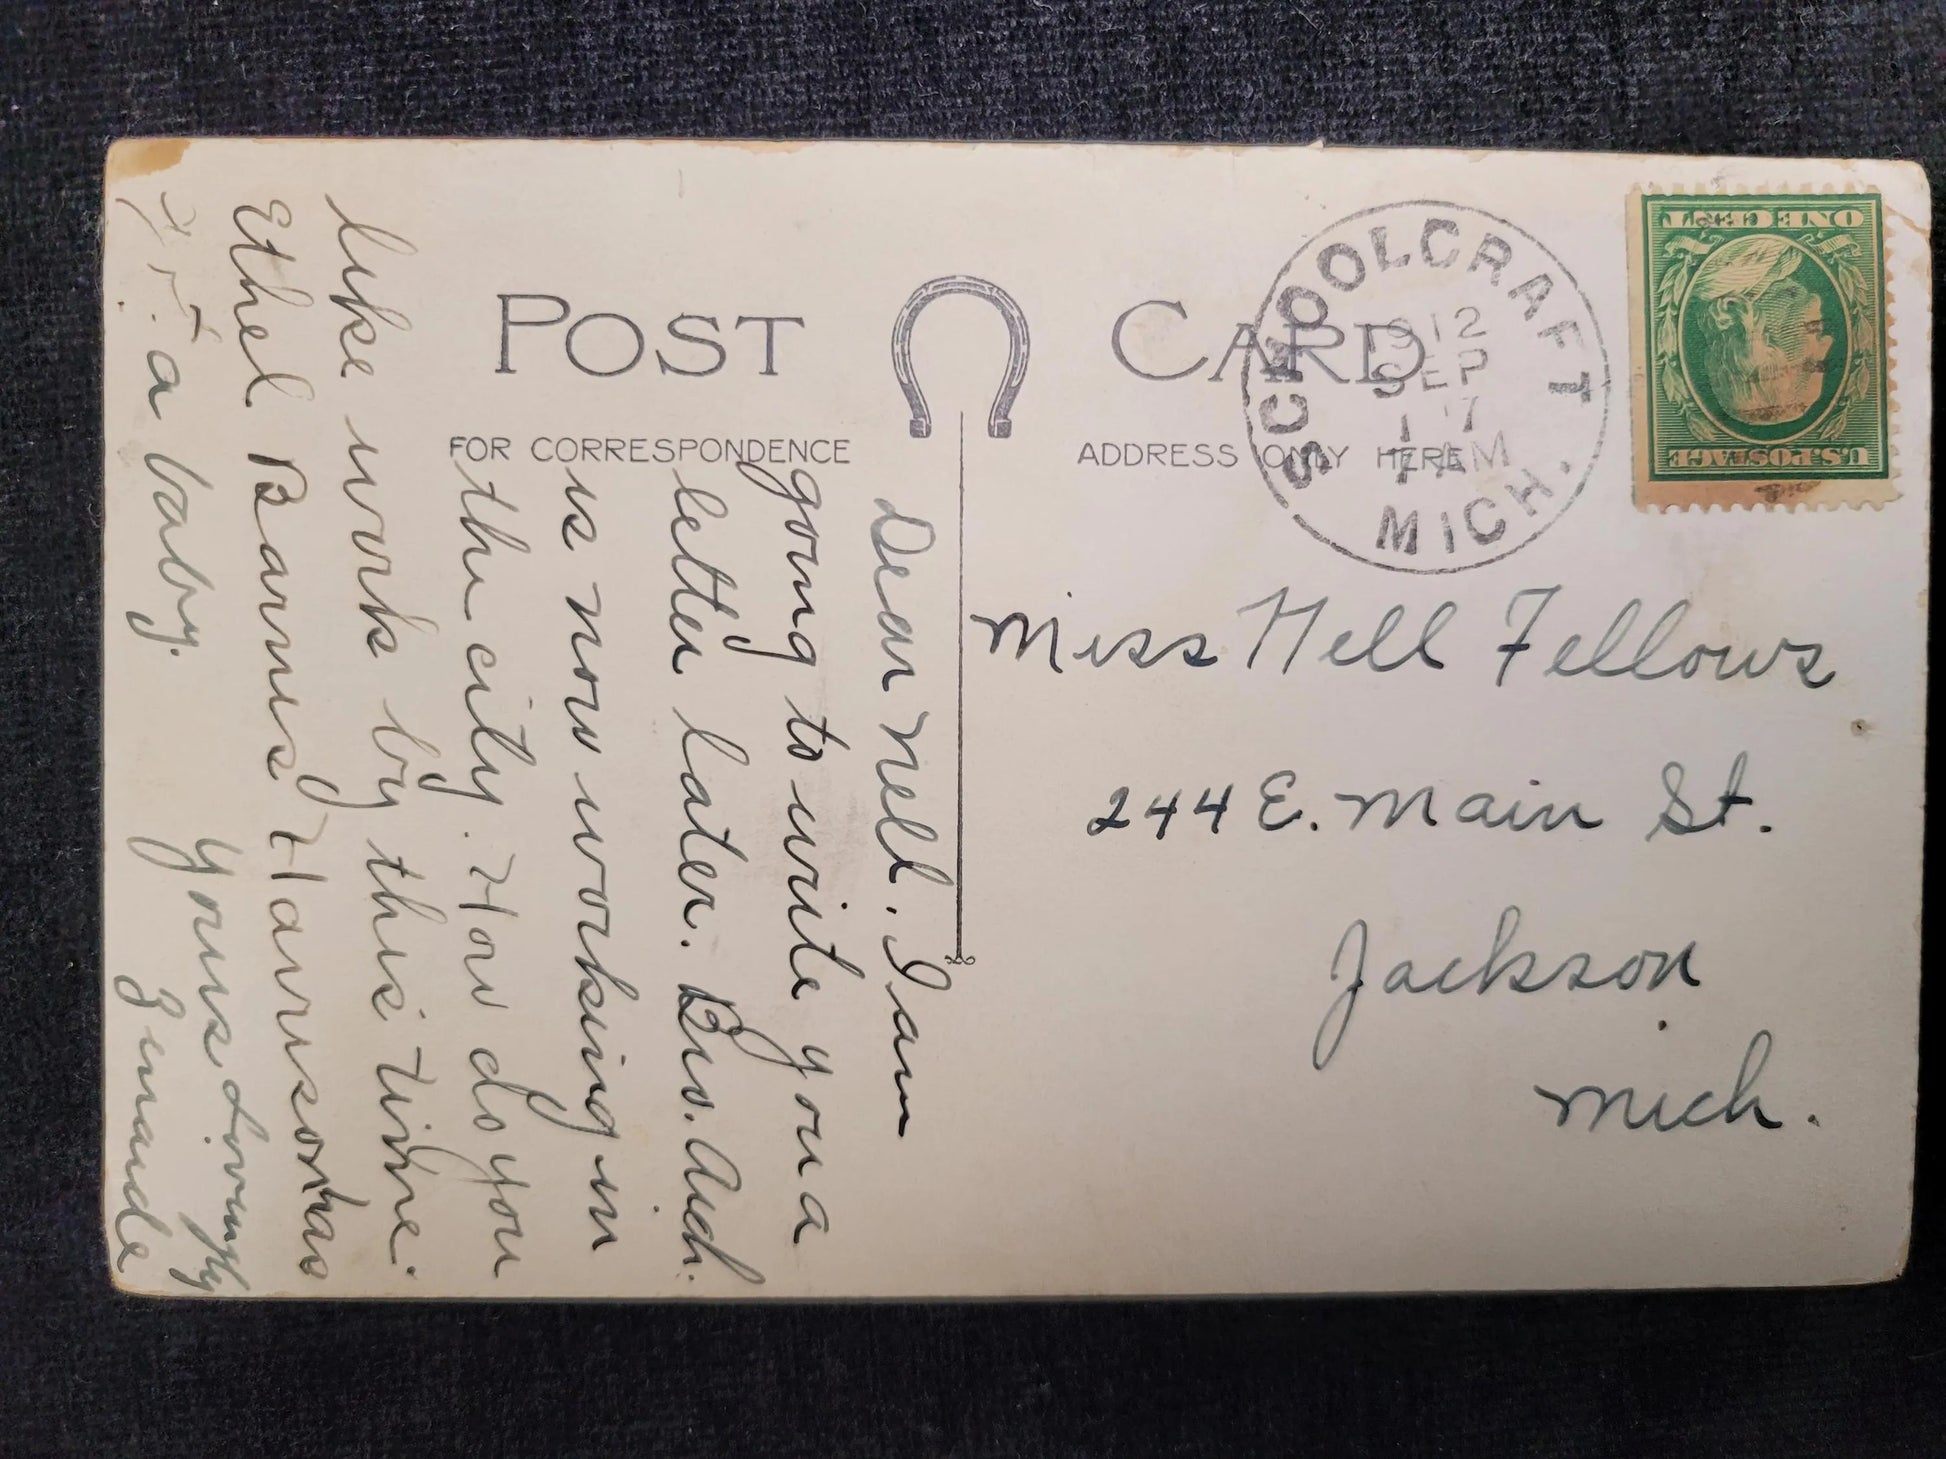 POST CARD
FOR CORRESPONDENCE
ADDRESS ONLY HERE
SCHOOLCRAFT
MICH.
912
SEP
17
7 AM
ONE CENT
U.S. POSTAGE
Miss Nell Fellows
244 E. Main St.
Jackson
Mich.
Dear Nell. I am
going to write you a
letter later. Bro. Aud.
is now working in
the city. How do you
like work by this time.
Ethel Barnes Harrison has
a baby.
Yours Lovingly